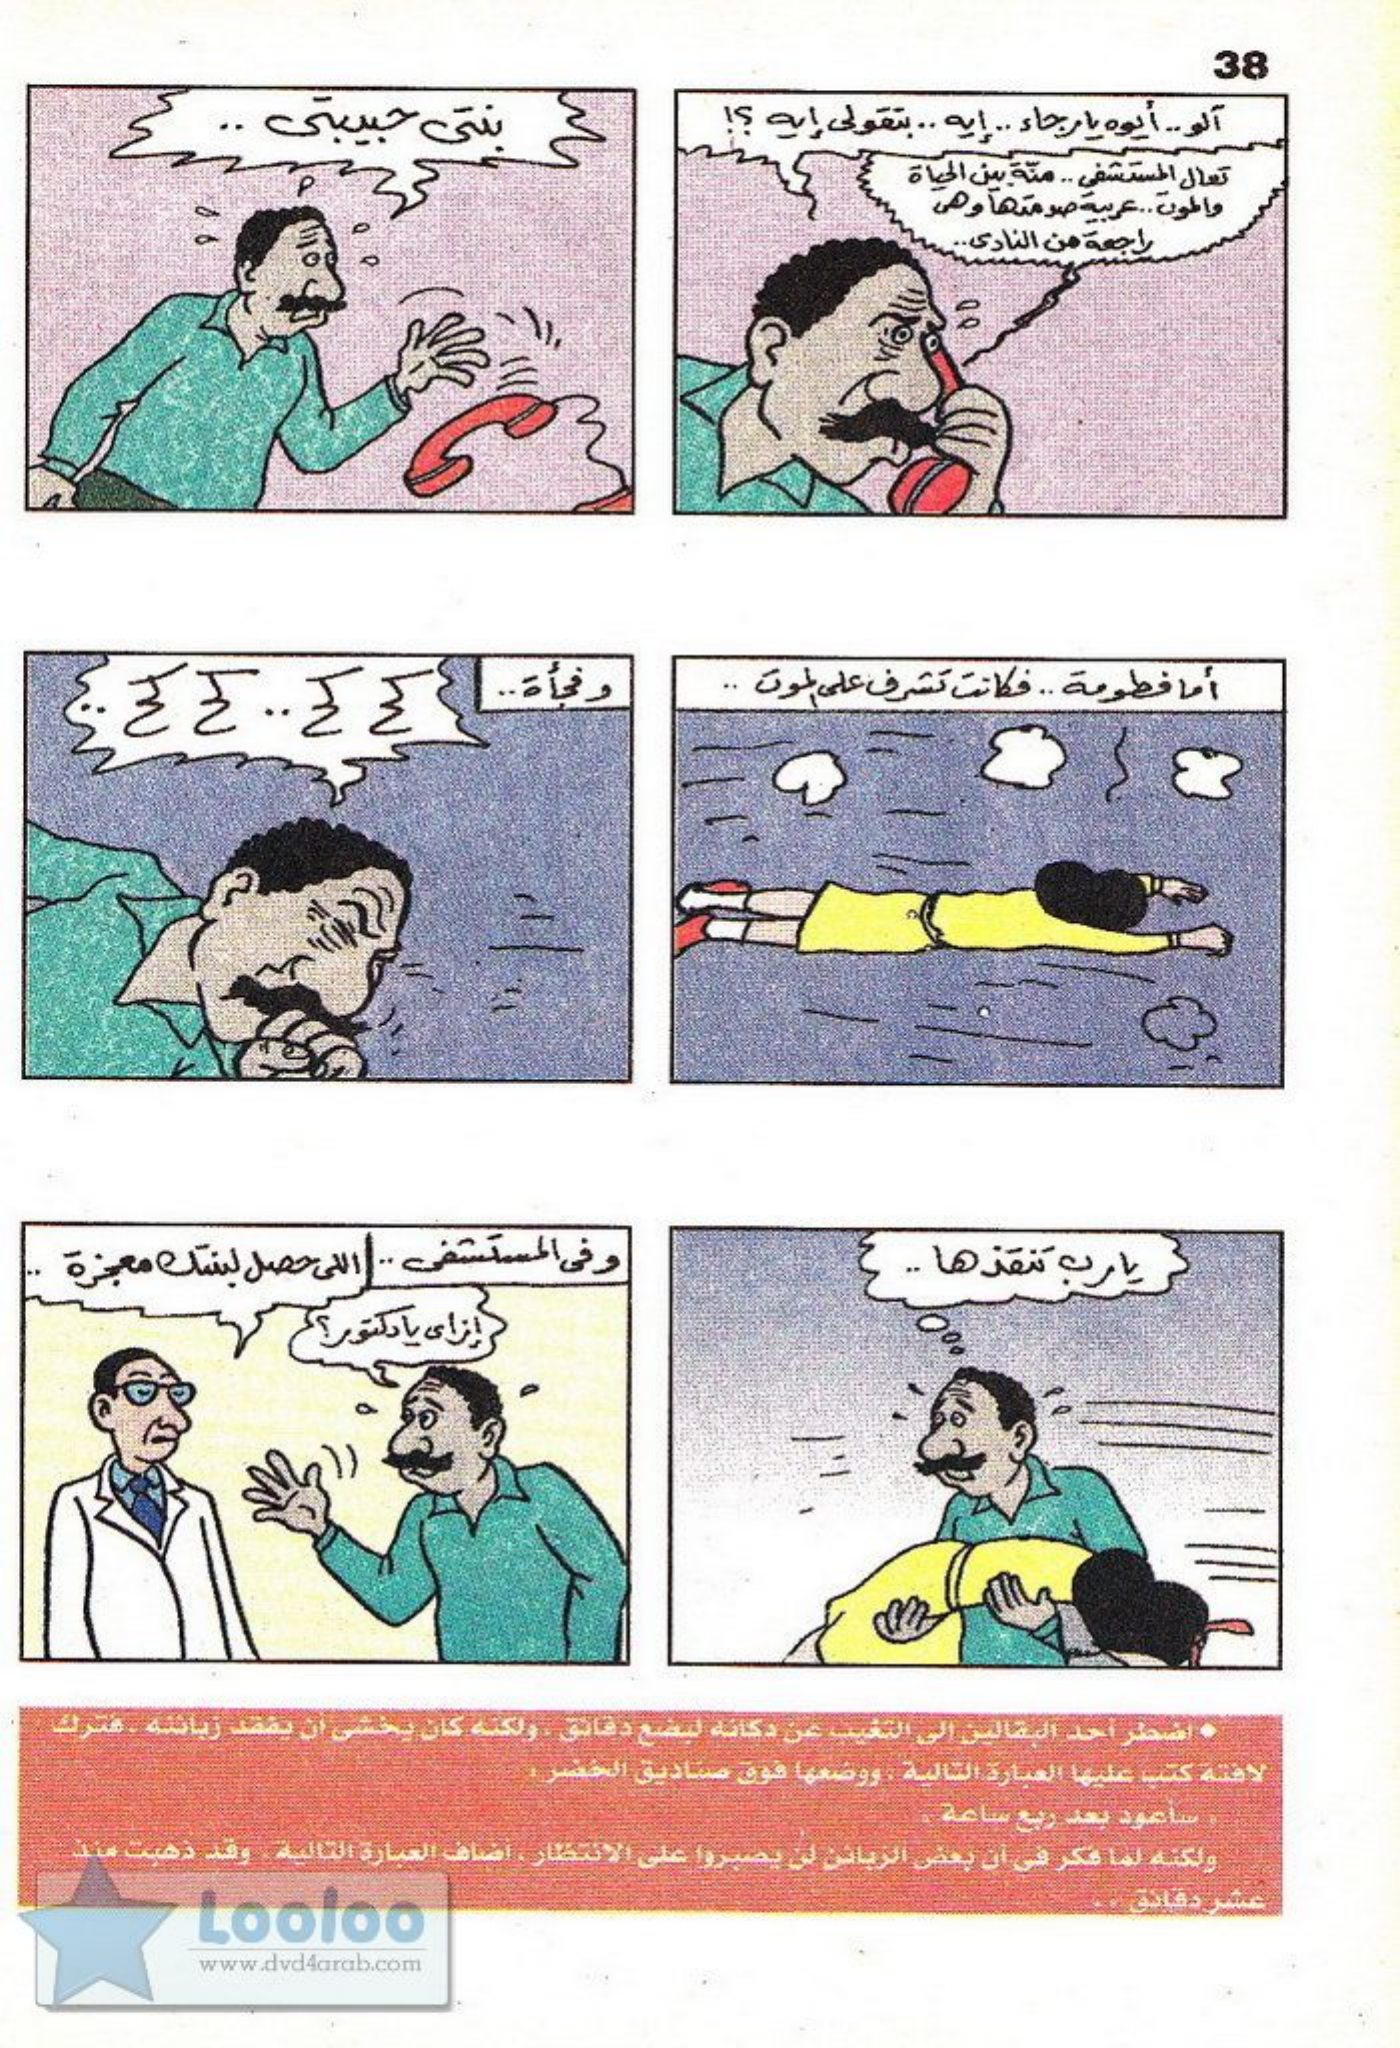 38
آلو.. أيوه يا رجاء.. إيه.. بتقولى إيه ؟!
تعال المستشفى.. منّة بين الحياة
والموت.. عربية صدمتها وهى
راجعة من النادى..
بنتى حبيبتى ..
أما فطومة.. فكانت تشرف على الموت ..
وفجأة..
كح كح .. كح كح ..
يارب تنقذها ..
وفى المستشفى ..
اللى حصل لبنتك معجزة ..
إزاى يا دكتور؟
• اضطر أحد البقالين إلى التغيب عن دكانه لبضع دقائق ، ولكنه كان يخشى أن يفقد زبائنه ، فترك
لافتة كتب عليها العبارة التالية ، ووضعها فوق صناديق الخضر ،
، سأعود بعد ربع ساعة ،
ولكنه لما فكر فى أن بعض الزبائن لن يصبروا على الانتظار ، أضاف العبارة التالية ، وقد ذهبت منذ
عشر دقائق ، .
Looloo
www.dvd4arab.com